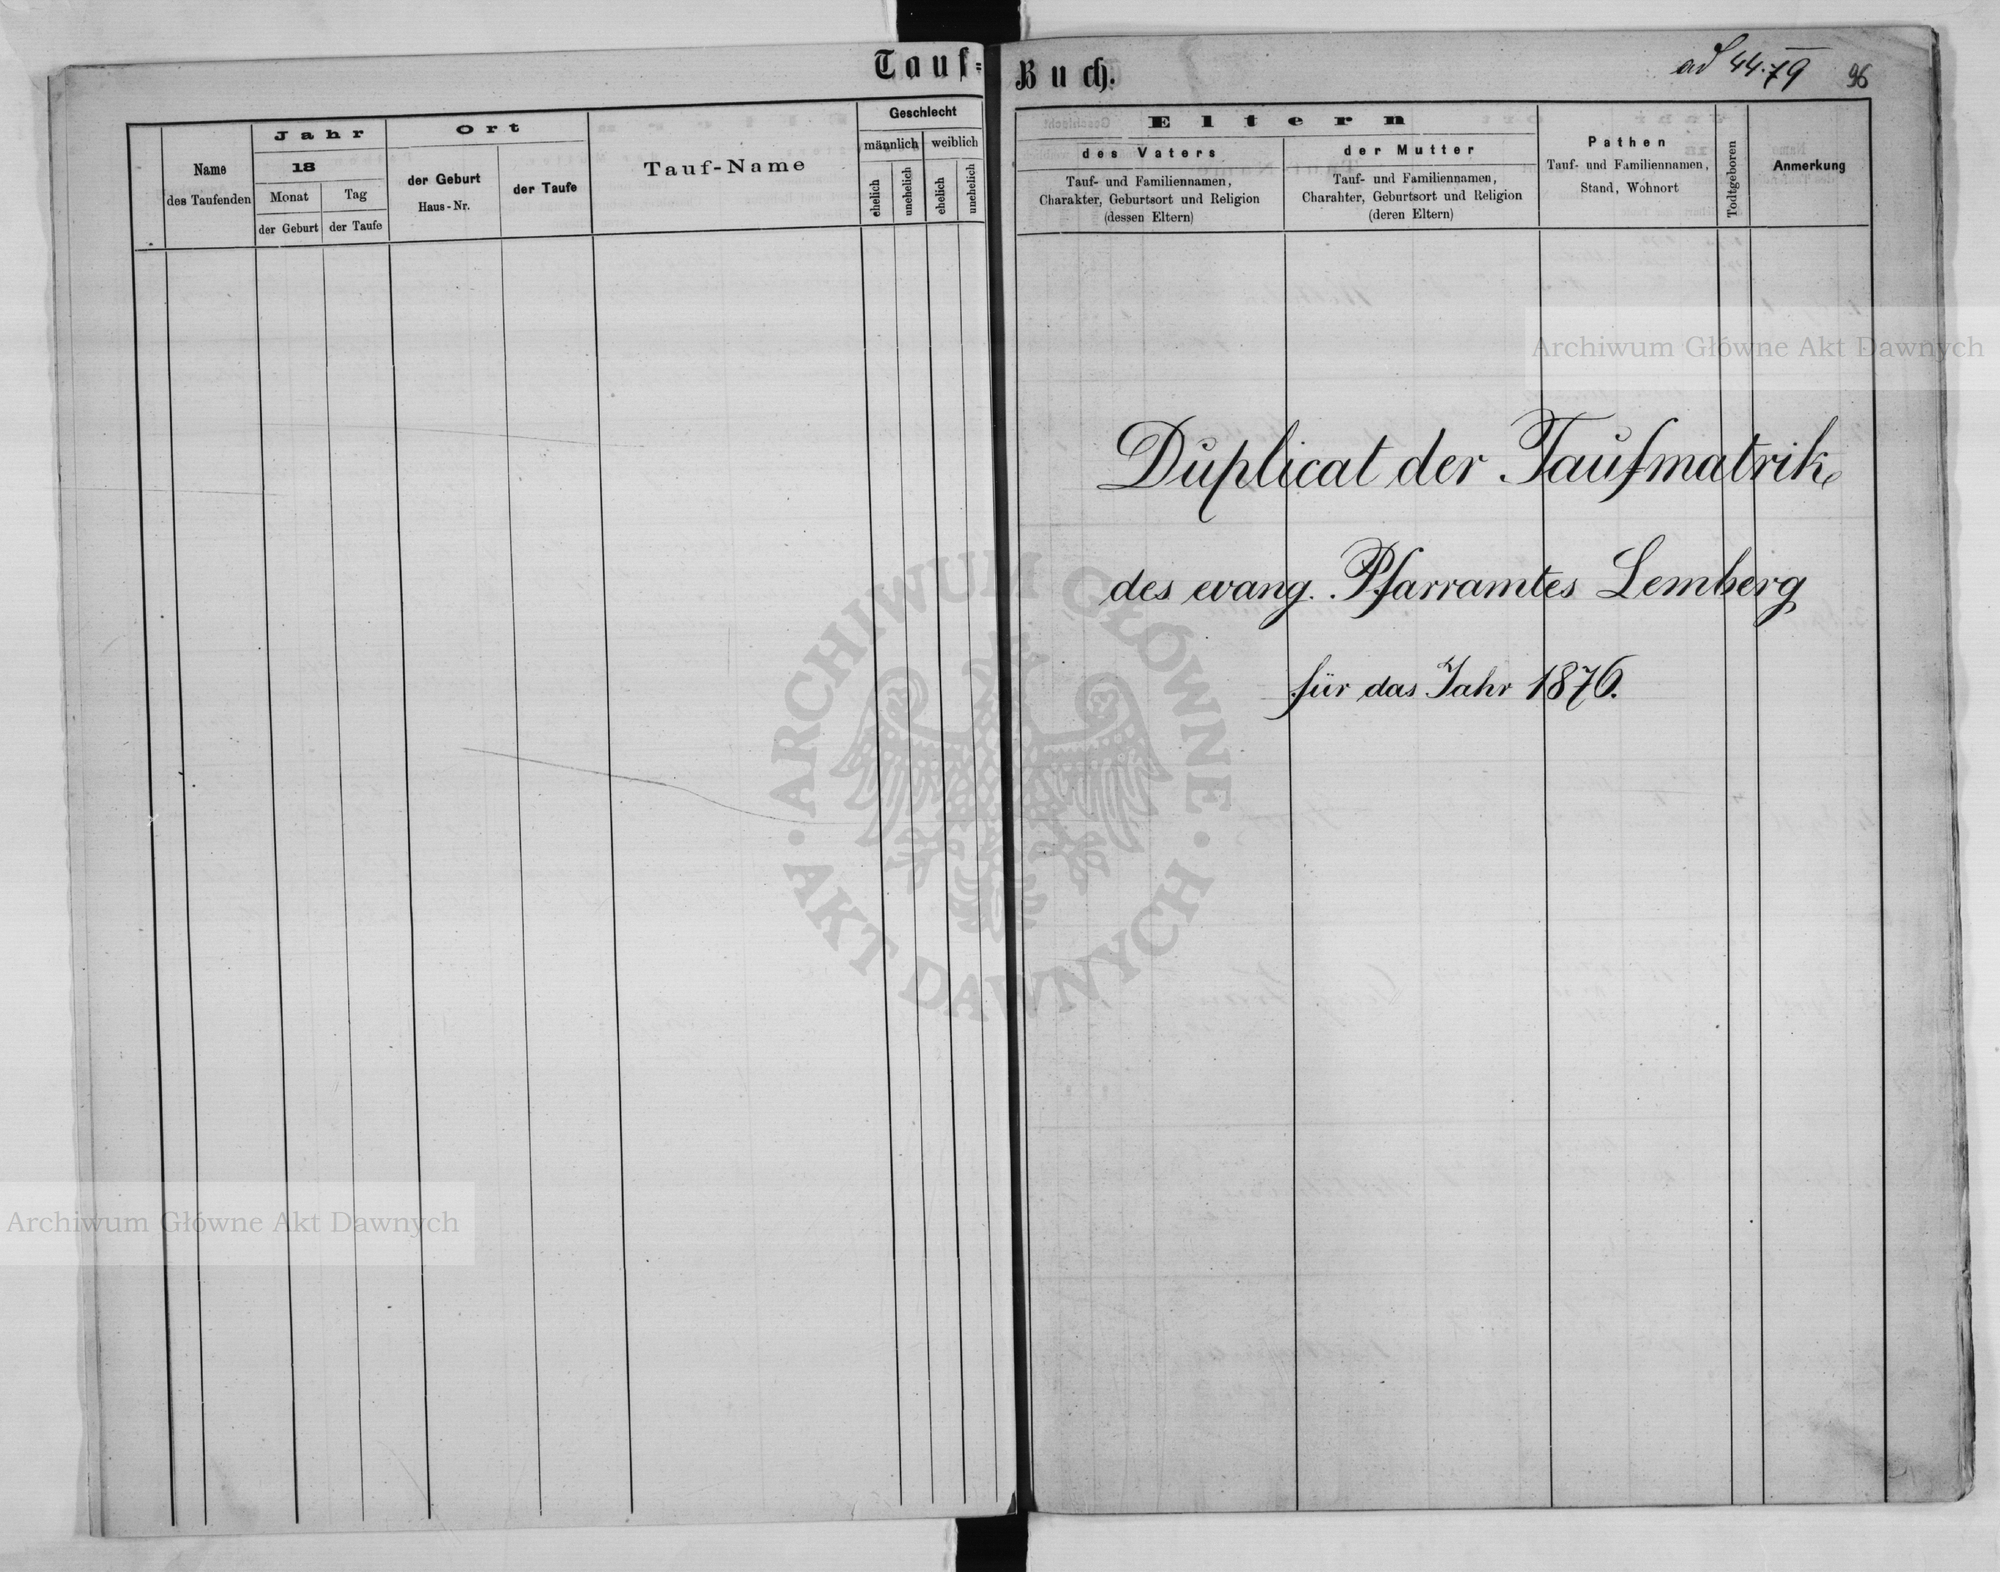 Tauf-
Name
des Taufenden
Jahr
18
Monat
Tag
der Geburt
der Taufe
Ort
der Geburt
Haus-Nr.
der Taufe
Tauf-Name
Geschlecht
männlich
weiblich
ehelich
unehelich
ehelich
unehelich
Buch.
ad 44.79
96
Eltern
des Vaters
Tauf- und Familiennamen,
Charakter, Geburtsort und Religion
(dessen Eltern)
der Mutter
Tauf- und Familiennamen,
Charahter, Geburtsort und Religion
(deren Eltern)
Pathen
Tauf- und Familiennamen,
Stand, Wohnort
Todtgeboren
Anmerkung
Archiwum Główne Akt Dawnych
Duplicat der Taufmatrik
des evang. Pfarramtes Lemberg
für das Jahr 1876.
ARCHIWUM GŁÓWNE
· AKT DAWNYCH ·
Archiwum Główne Akt Dawnych